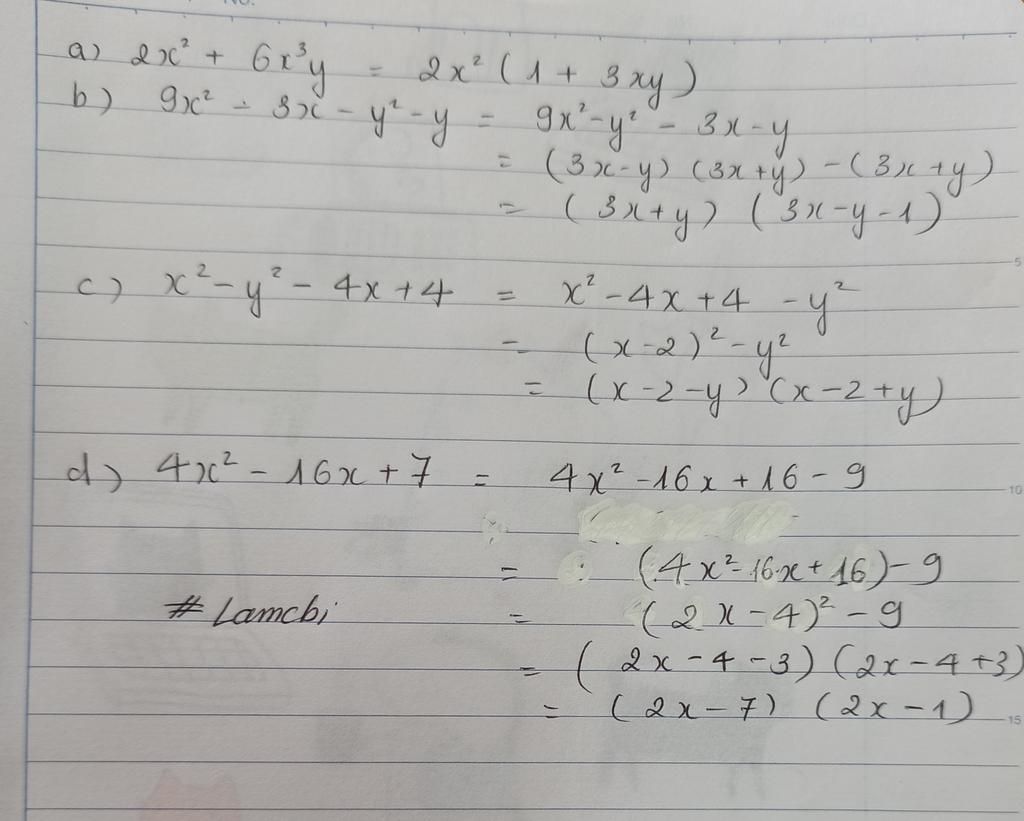 a) 2x² + 6x³y = 2x² (1 + 3xy)
b) 9x² - 3x - y² - y = 9x² - y² - 3x - y
= (3x-y) (3x+y) - (3x+y)
= (3x+y) (3x-y-1)
c) x² - y² - 4x + 4 = x² - 4x + 4 - y²
= (x-2)² - y²
= (x-2-y) (x-2+y)
d) 4x² - 16x + 7 = 4x² - 16x + 16 - 9
= (4x² - 16x + 16) - 9
# Lamcbi = (2x-4)² - 9
= (2x-4-3) (2x-4+3)
= (2x-7) (2x-1)
5
10
15